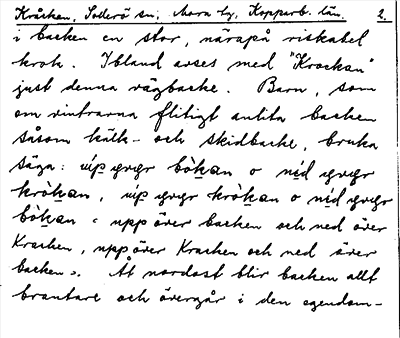 Kråcken, Sollerö sn; Mora tg, Kopparb. län. 2.
i backen en stor, närapå riskabel
krok. Ibland avses med "Krockan"
just denna vägbacke. Barn, som
om vintrarna flitigt anlita backen
såsom kälk- och skidbacke, bruka
säga: úp̱ bòḵan o níd
kròḵan, úp̱ kròḵan o níd
bòḵan « upp över backen och ned över
Kracken, upp över Kracken och ned över
backen ». Åt nordost blir backen allt
brantare och övergår i den egendom-